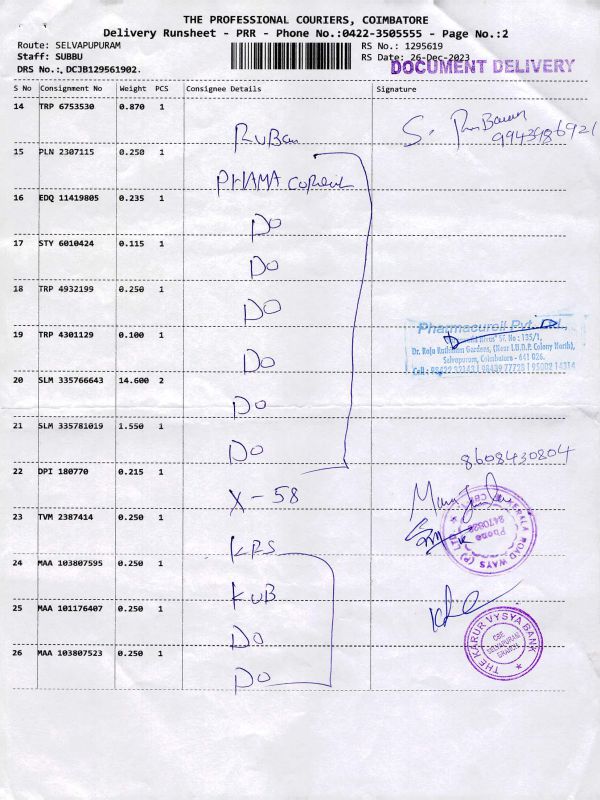 THE PROFESSIONAL COURIERS, COIMBATORE
Delivery Runsheet - PRR - Phone No.:0422-3505555 - Page No.:2
Route: SELVAPUPURAM
Staff: SUBBU
DRS No.: DCJB129561902.
RS No.: 1295619
RS Date: 26-Dec-2023
DOCUMENT DELIVERY
S No Consignment No Weight PCS Consignee Details Signature
14 TRP 6753530 0.870 1
Ruban S.
9943986921
15 PLN 2307115 0.250 1
PHAMA
16 EDQ 11419805 0.235 1
DO
17 STY 6010424 0.115 1
DO
18 TRP 4932199 0.250 1
DO
19 TRP 4301129 0.100 1
DO
Pharmacureil Pvt. Ltd.,
No : 135/1,
Dr. Raja Krishnan Gardens, (Near I.U.D.P. Colony North),
Selvapuram, Coimbatore - 641 026.
Cell :
20 SLM 335766643 14.600 2
DO
21 SLM 335781019 1.550 1
DO
8608430804
22 DPI 180770 0.215 1
X-58
KERALA ROAD WAYS (P) LTD
CBE
Phone
2470826
23 TVM 2387414 0.250 1
KRS
24 MAA 103807595 0.250 1
KUB
25 MAA 101176407 0.250 1
DO
THE KARUR VYSYA BANK
CBE
SELVAPURAM
BRANCH
26 MAA 103807523 0.250 1
DO